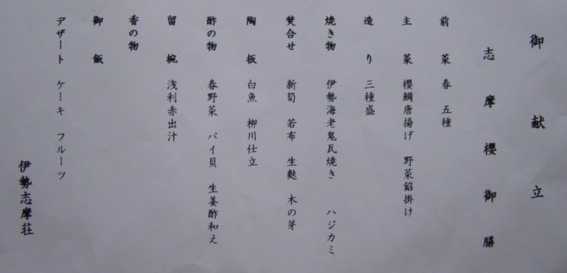 御献立
志摩櫻御膳
前菜 春 五種
主菜 櫻鯛唐揚げ 野菜餡掛け
造り 三種盛
焼き物 伊勢海老鬼瓦焼き ハジカミ
焚合せ 新筍 若布 生麩 木の芽
陶板 白魚 柳川仕立
酢の物 春野菜 バイ貝 生姜酢和え
留椀 浅利赤出汁
香の物
御飯
デザート ケーキ フルーツ
伊勢志摩荘